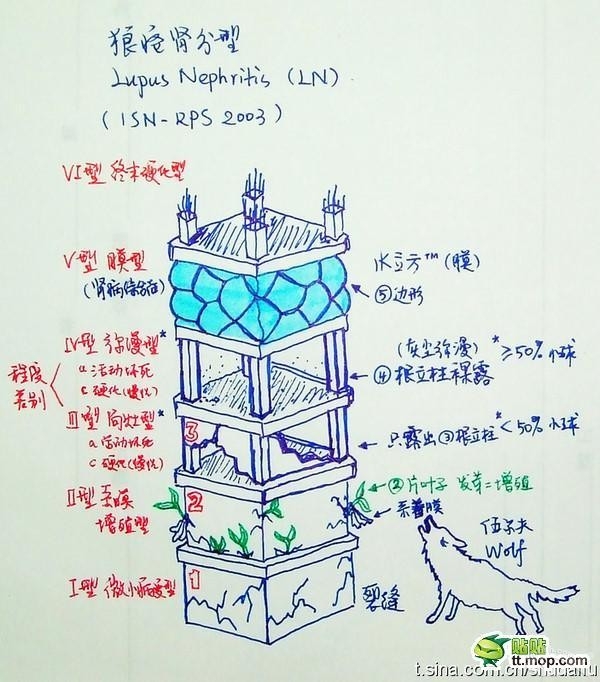 狼疮肾分型
Lupus Nephritis (LN)
(ISN-RPS 2003)
VI型 终末硬化型
V型 膜型
(肾病综合征)
水立方™ (膜)
⑤边形
IV型 弥漫型*
a 活动坏死
c 硬化(慢性)
程度
差别
(灰尘弥漫)* ≥50%小球
④根立柱裸露
III型 局灶型*
a 活动坏死
c 硬化(慢性)
3
只露出③根立柱* <50%小球
II型 系膜
增殖型
2
②片叶子 发芽=增殖
系着膜
伍尔夫
Wolf
I型 微小病变型
1
裂缝
贴贴
tt.mop.com
t.sina.com.cn/shuaifu